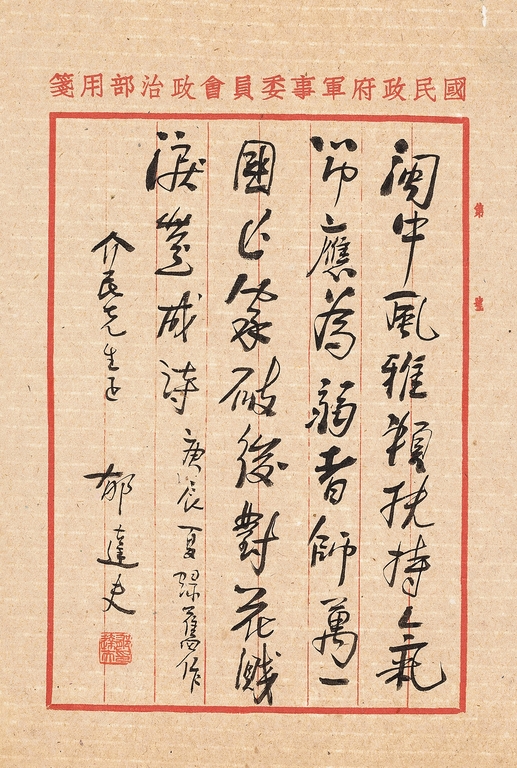 國民政府軍事委員會政治部用箋
第 號
閩中風雅賴扶持氣
節應為弱者師萬一
國亡家破後對花濺
淚豈成詩 庚辰夏録舊作
介民先生正 郁達夫